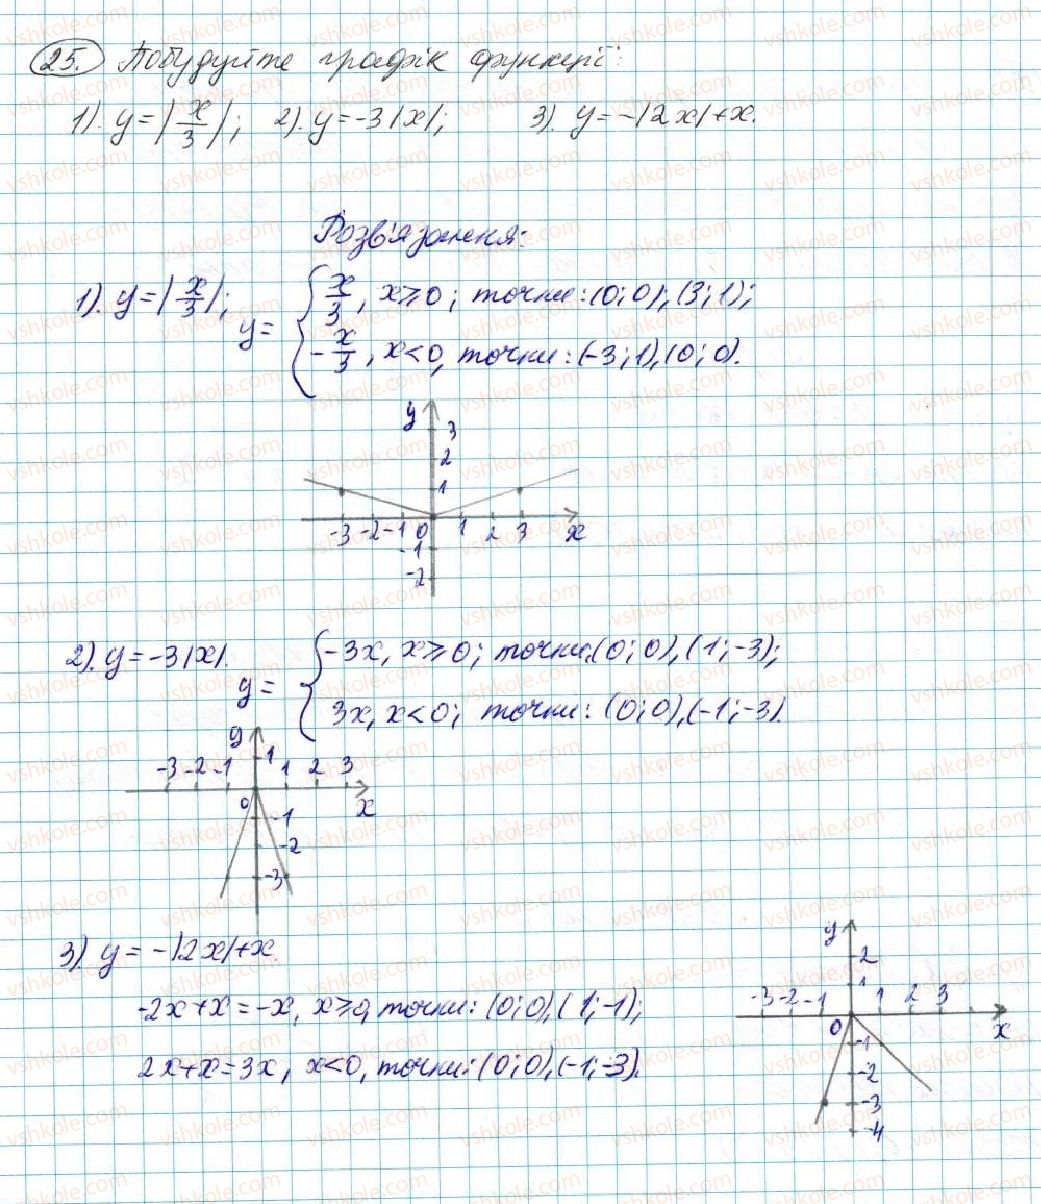 25. Побудуйте графік функції:
1). y=|x/3|; 2). y=-3|x|; 3). y=-|2x|+x.
Розв'язання:
1). y=|x/3|; y= { x/3, x≥0; точки: (0;0), (3;1);
-x/3, x<0, точки: (-3;1), (0;0).
y
3
2
1
-3 -2 -1 0 1 2 3 x
-1
-2
2). y=-3|x|. y= { -3x, x≥0; точки: (0;0), (1;-3);
3x, x<0; точки: (0;0), (-1;-3).
y
1
-3 -2 -1 1 2 3
0 x
-1
-2
-3
3). y=-|2x|+x.
-2x+x=-x, x≥0, точки: (0;0), (1;-1);
2x+x=3x, x<0, точки: (0;0), (-1;-3).
y
2
1
-3 -2 -1 1 2 3
0 x
-1
-2
-3
-4
vshkole.com